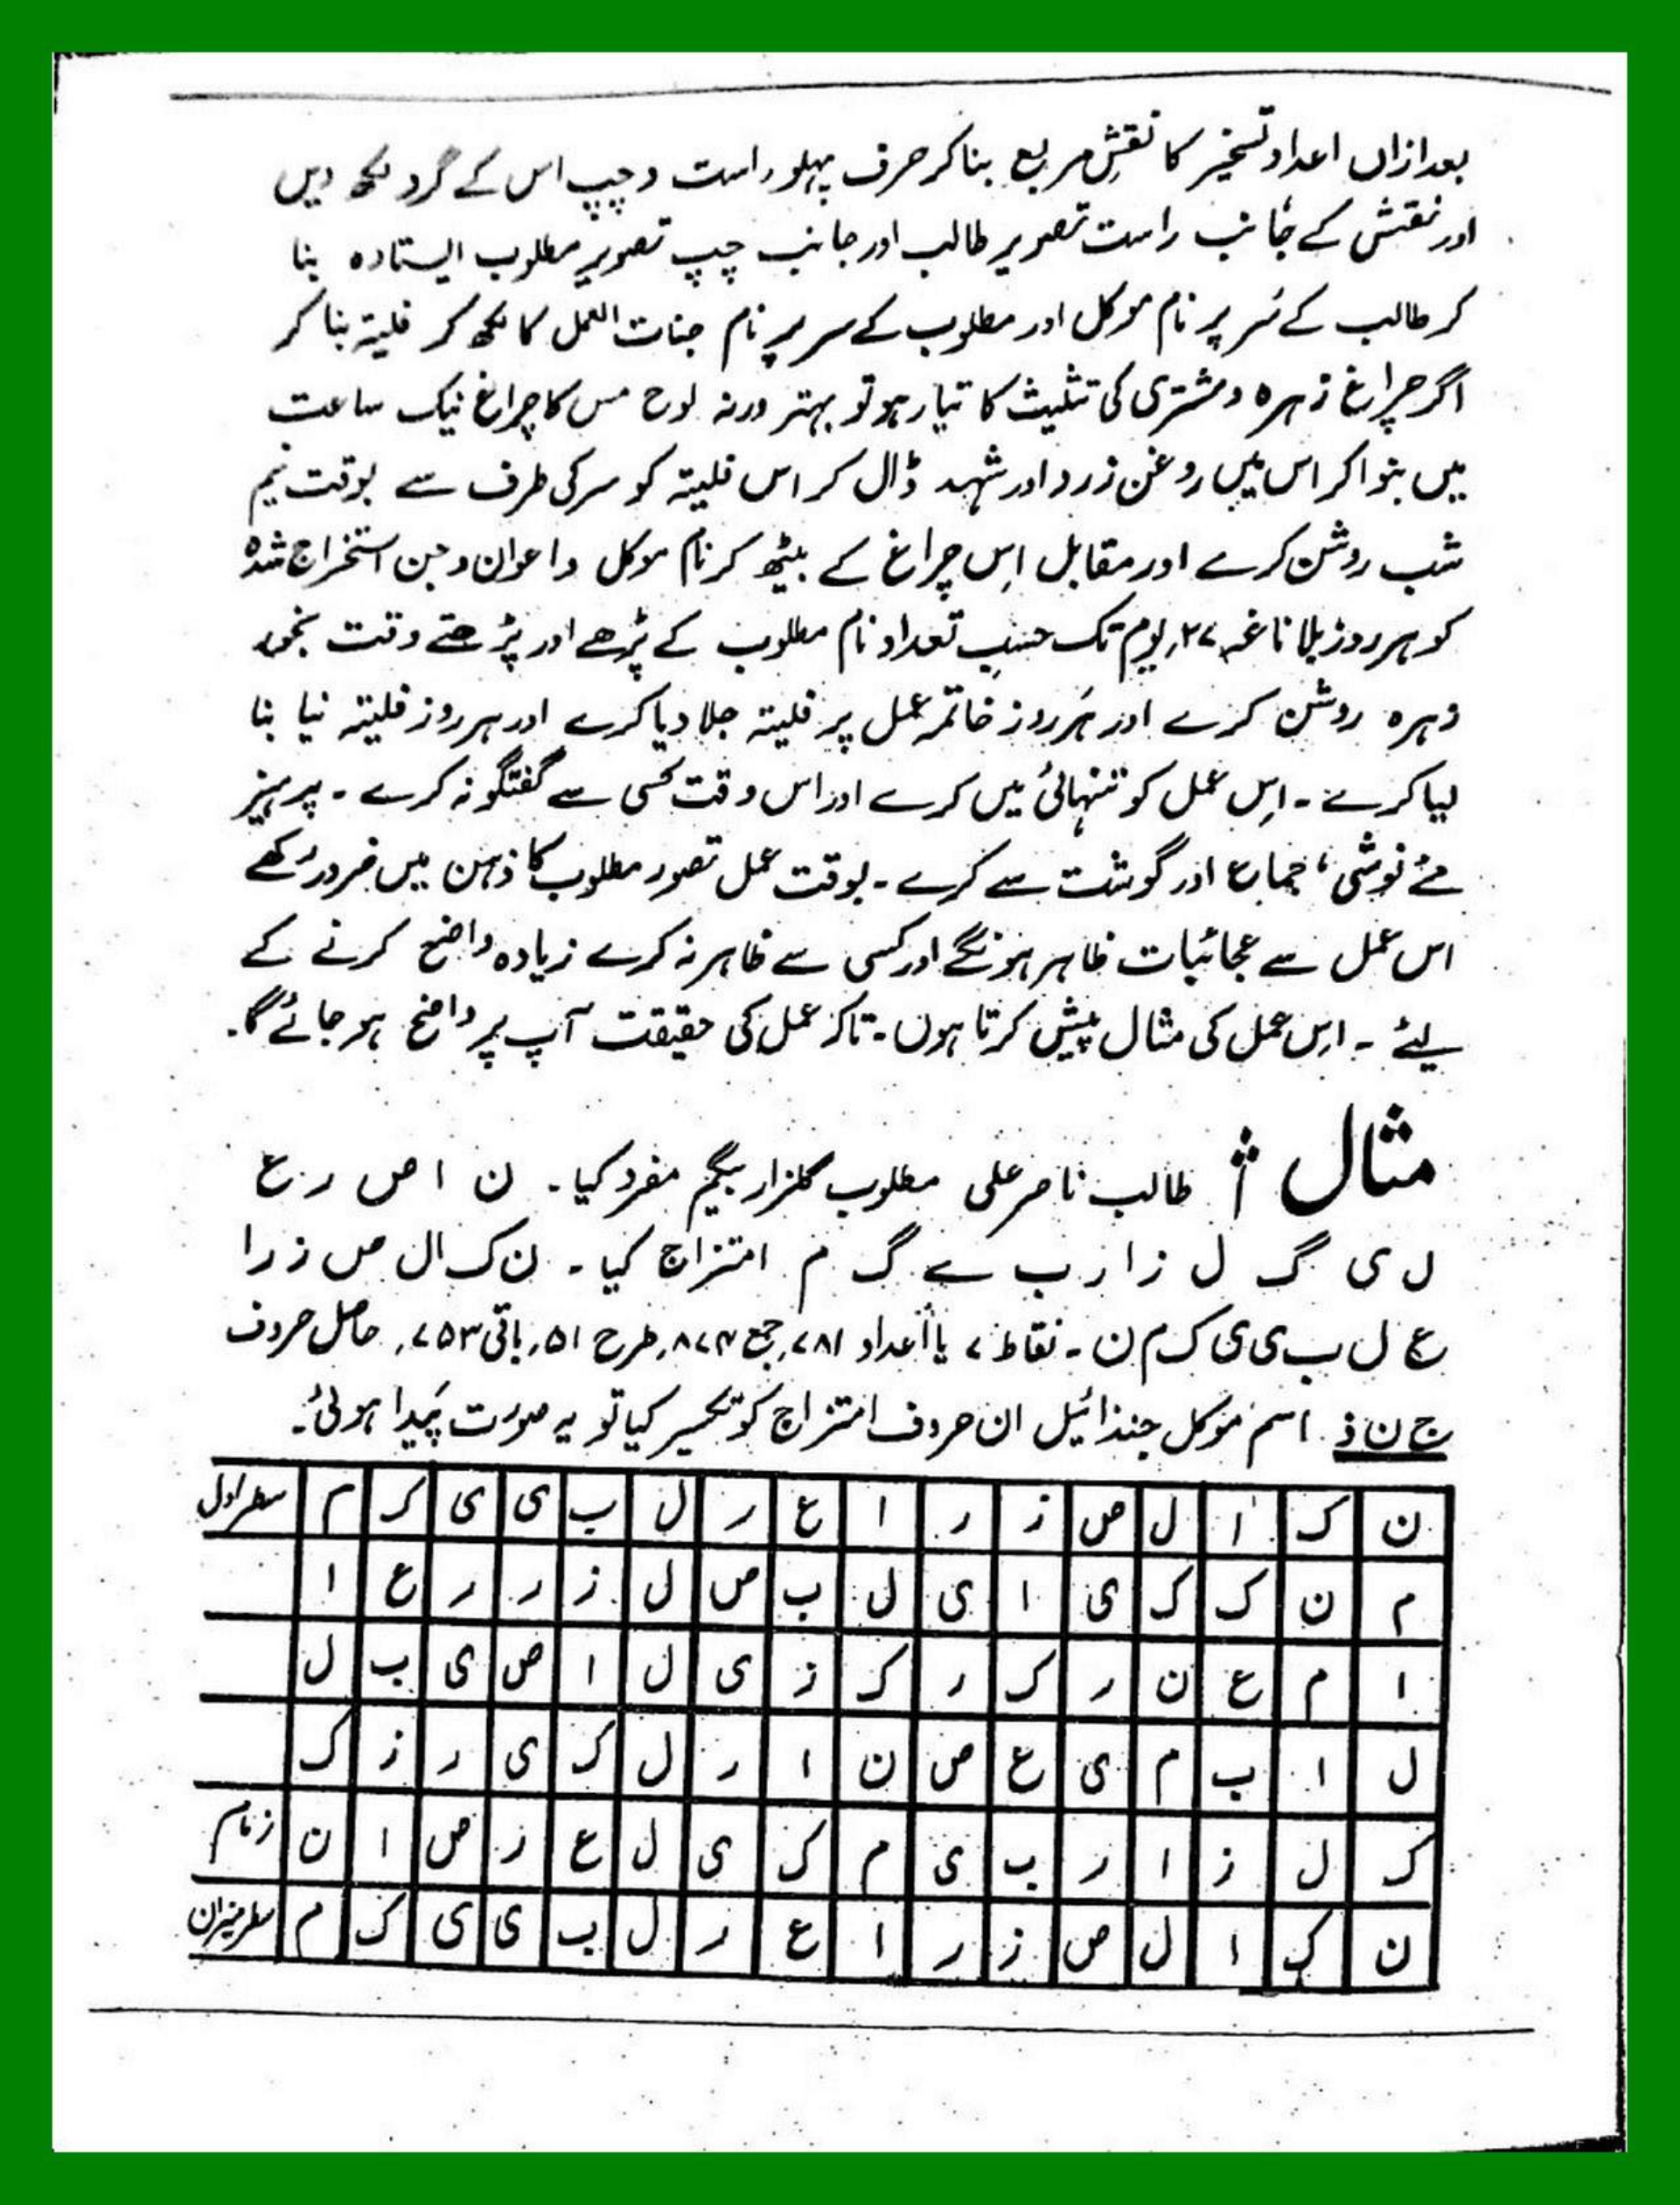 بعدازاں اعداد تسخیر کا نقشِ مربع بنا کر حرف پہلو راست و چپ اس کے گرد لکھ دیں
اور نقش کے جانب راست تصویرِ طالب اور جانب چپ تصویرِ مطلوب ایستادہ بنا
کر طالب کے سَر پر نام موکل اور مطلوب کے سر پر نام جنات العمل کا لکھ کر فلیتہ بنا کر
اگر چراغ زہرہ و مشتری کی تثلیث کا تیار ہو تو بہتر ورنہ لوح مس کا چراغ نیک ساعت
میں بنوا کر اس میں روغن زرد اور شہد ڈال کر اس فلیتہ کو سر کی طرف سے بوقت نیم
شب روشن کرے اور مقابل اِس چراغ کے بیٹھ کر نام موکل و اعوان و جن استخراج شدہ
کو ہر روز بلا ناغہ ۲۷ یوم تک حسبِ تعداد نام مطلوب کے پڑھے اور پڑھتے وقت بخور
زہرہ روشن کرے اور ہَر روز خاتمہ عمل پر فلیتہ جلا دیا کرے اور ہر روز فلیتہ نیا بنا
لیا کرے ۔ اِس عمل کو تنہائی میں کرے اور اس وقت کسی سے گفتگو نہ کرے ۔ پرہیز
مے نوشی، جماع اور گوشت سے کرے ۔ بوقت عمل تصور مطلوب کا ذہن میں ضرور رکھے
اس عمل سے عجائبات ظاہر ہونگے اور کسی سے ظاہر نہ کرے زیادہ واضح کرنے کے
لیئے ۔ اِس عمل کی مثال پیش کرتا ہوں ۔ تاکہ عمل کی حقیقت آپ پر واضح ہو جائے گا۔
مثال طالب ناصر علی مطلوب گلزار بیگم مفرد کیا ۔ ن ا ص ر ع
ل ی گ ل ز ا ر ب ے گ م امتزاج کیا ۔ ن ک ا ل ص ز ر ا
ع ل ب ی ی ک م ن ۔ نقاط ۷ با اعداد ۷۸۱ جمع طرح ۵۱ باقی ۷۵۳ حاصل حروف
ج ن ذ اسم موکل جنذائیل ان حروف امتزاج کو تکسیر کیا تو یہ صورت پَیدا ہوئی۔
ن ک ا ل ص ز ر ا ع ر ل ب ی ی ک م سطر اول
م ن ک ک ی ا ی ل ب ص ل ز ر ر ع ا
ا م ع ن ر ک ر ک ز ی ل ا ص ی ب ل
ل ا ب م ی ع ص ن ا ر ل ک ی ر ز ک
ک ل ز ا ر ب ی م ک ی ل ع ر ص ا ن زمام
ن ک ا ل ص ز ر ا ع ر ل ب ی ی ک م سطر میزان